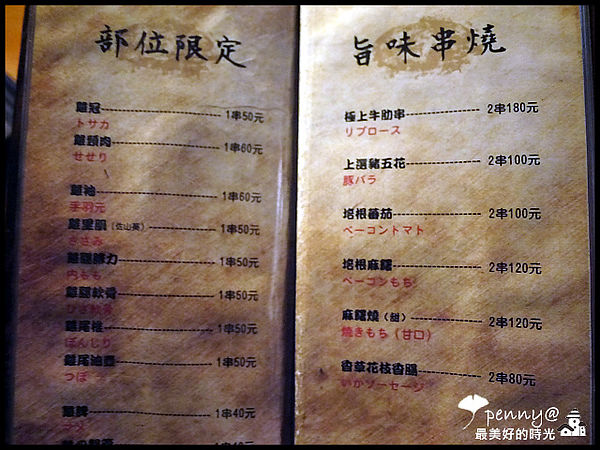 部位限定
雞冠 1串50元
トサカ
雞頸肉 1串60元
せせり
雞袖 1串60元
手羽元
雞里肌（佐山葵） 1串50元
ささみ
雞腿腱力 1串50元
内もも
雞腿軟骨 1串50元
雞尾椎 1串50元
ぼんじり
雞尾油壺 1串50元
つぼ
雞脾 1串40元
旨味串燒
極上牛肋串 2串180元
リブロース
上選豬五花 2串100元
豚バラ
培根蕃茄 2串100元
ベーコントマト
培根麻糬 2串120元
ベーコンもち
麻糬燒（甜） 2串120元
焼きもち（甘口）
香草花枝香腸 2串80元
いかソーセージ
penny@
最美好的時光